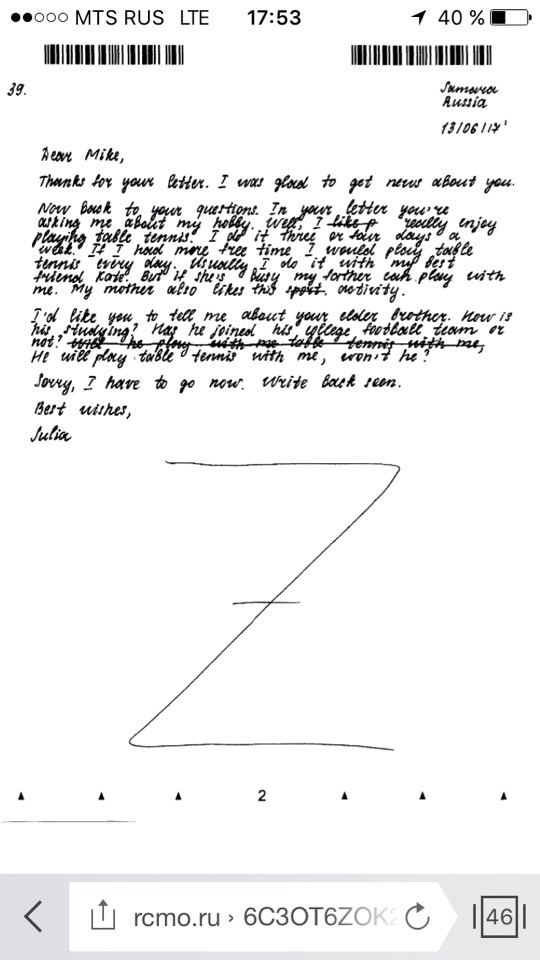 MTS RUS LTE 17:53 40 %
39.
Samara
Russia
13/06/17
Dear Mike,
Thanks for your letter. I was glad to get news about you.
Now back to your questions. In your letter you're
asking me about my hobby. Well, I like p really enjoy
playing table tennis. I do it three or four days a
week. If I had more free time I would play table
tennis every day. Usually I do it with my best
friend Kate. But if she's busy my father can play with
me. My mother also likes this sport. activity.
I'd like you to tell me about your elder brother. How is
his studying? Has he joined his college football team or
not? Will he play with me table tennis with me,
He will play table tennis with me, won't he?
Sorry, I have to go now. Write back soon.
Best wishes,
Julia
2
rcmo.ru › 6C3OT6ZOK
46